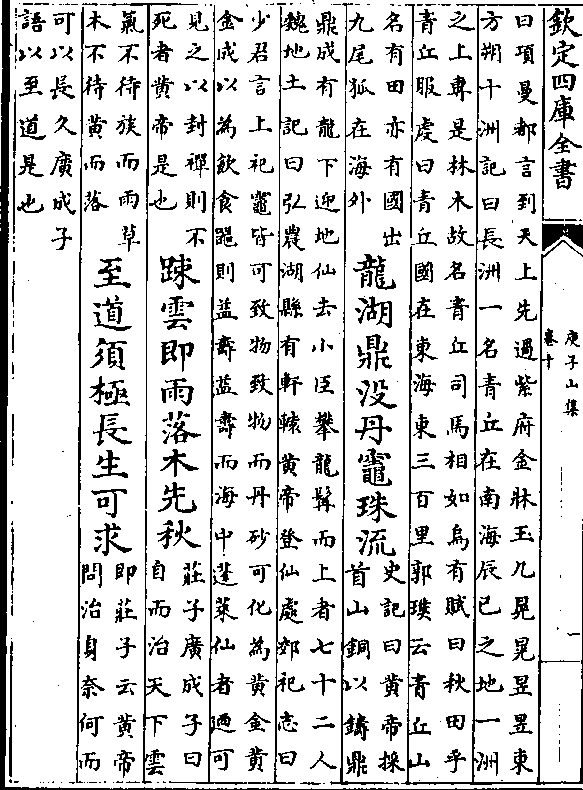 欽定四庫全書
庾子山集
卷十
一
曰項曼都言到天上先過紫府金牀玉几晃晃昱昱東
方朔十洲記曰長洲一名青丘在南海辰巳之地一洲
之上專是林木故名青丘司馬相如烏有賦曰秋田乎
青丘服虔曰青丘國在東海東三百里郭璞云青丘山
名有田亦有國出
九尾狐在海外
龍湖鼎没丹竈珠流
史記曰黄帝採
首山銅以鑄鼎
鼎成有龍下迎地仙去小臣攀龍髯而上者七十二人
魏地土記曰弘農湖縣有軒轅黄帝登仙處郊祀志曰
少君言上祀竈皆可致物致物而丹砂可化為黄金黄
金成以為飲食噐則益壽益壽而海中蓬萊仙者廼可
見之以封禪則不
死者黄帝是也
疎雲即雨落木先秋
莊子廣成子曰
自而治天下雲
氣不待族而雨草
木不待黄而落
至道須極長生可求
即莊子云黄帝
問治身奈何而
可以長久廣成子
語以至道是也